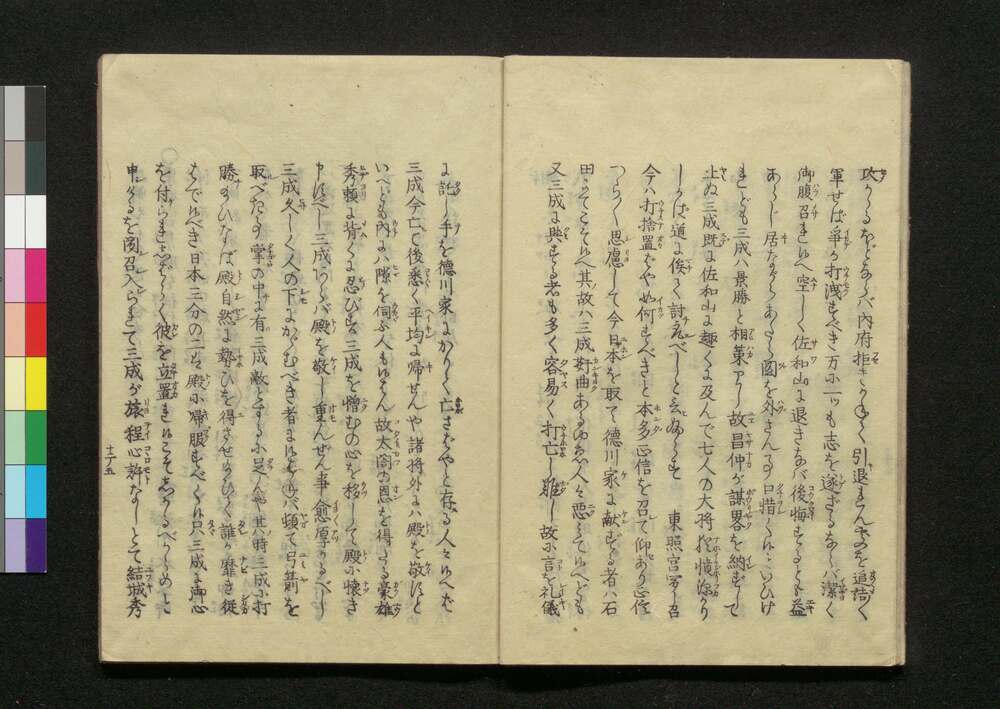 攻かゝるならバ内府拒ぎかねて引退ませんを追詰て
軍せば争か打洩すべき万に一ツも志を遂ざるならバ潔く
御腹召ませ候へ空しく佐和山に退きなば後悔するとも益
あらじ居ながらあたら圖を外さん事口惜く候といひけ
れども三成ハ景勝と相葉アリし故昌仲が謀畧を納ずして
止ぬ三成既に佐和山に趣くに及んで七人の大将猶憤深かり
しかば道に俟て討取べしと云ゐけるを 東照宮
今ハ打捨置ばやゃ如何すべきと本多正信を召て仰あり正信
つら〳〵思慮して今日本を取て徳川家に敵する者ハ石
田にてこそ候へ其故ハ三成奸曲ある故人々悪みて候へども
又三成に與する者も多く容易く打亡し難し故に言を礼儀
に託し手を徳川家にかりて亡さばやと存る人々候へども
三成今亡て後悉く平均に帰せんや諸将外にハ殿を敬ふと
いへども内にハ隙を伺ふ人も候はん故太閤の恩を得たる豪雄
秀頼に背くに忍びず三成を憎むの心を移して殿に懐き
申すべし三成アラバ殿を敬し重んぜん事愈厚かるべし
三成久しく人の下にかゞむべき者に候はねバ頓て弓箭を
取べきハ掌の中に有三成敵とするに足んや其時三成に打
勝給ひなば殿自然に勢ひを得させ給ひて誰か靡き従
はで候べき日本三分の二は殿に帰服すべく候只三成に御心
を付られしばらく彼を立置れ候こそしかるべからめと
申けるを聞召入られて三成が旅程心許なしとて結城秀
十ノ五